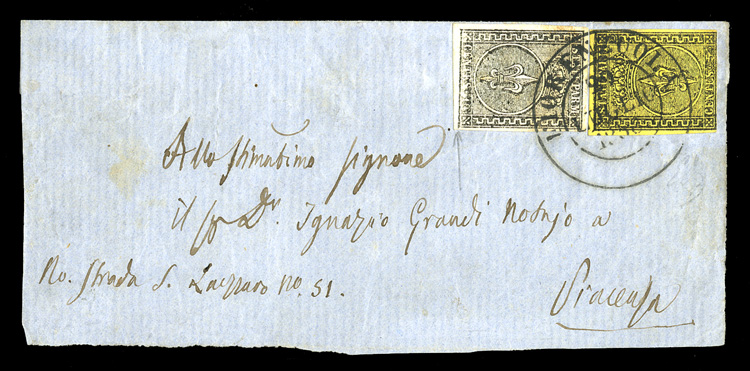 FIORENZUOLA
CENTES.
Allo Stimatissimo Signore
il Sig Dr. Ignazio Grandi Notajo a
No. Strada S. Lazzaro No. 51.
Piacenza